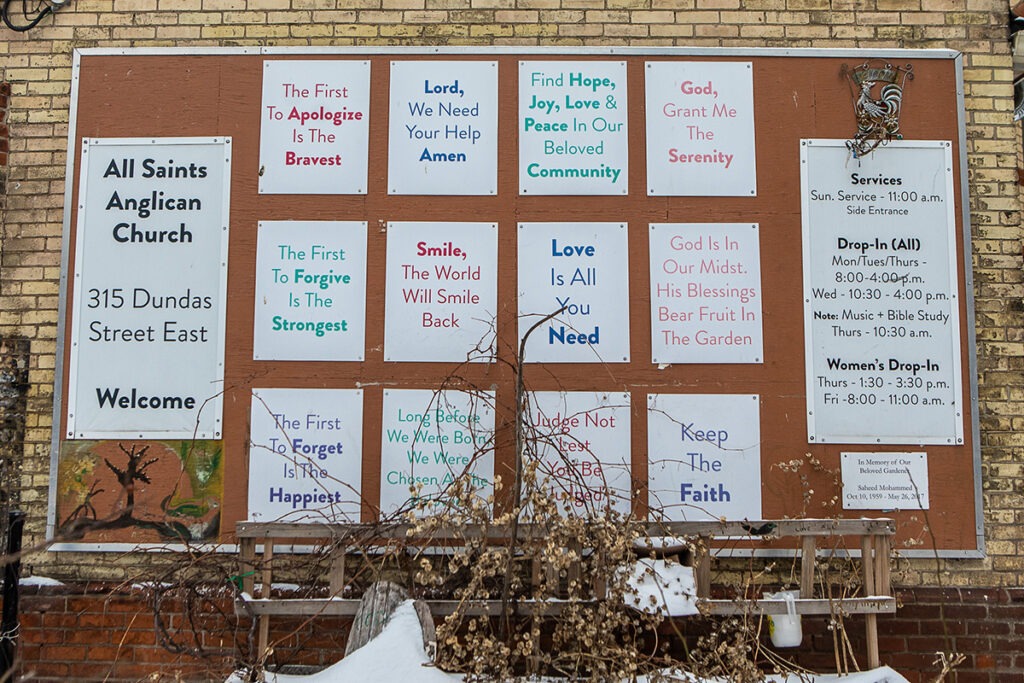 All Saints
Anglican
Church
315 Dundas
Street East
Welcome
The First
To Apologize
Is The
Bravest
Lord,
We Need
Your Help
Amen
Find Hope,
Joy, Love &
Peace In Our
Beloved
Community
God,
Grant Me
The
Serenity
The First
To Forgive
Is The
Strongest
Smile,
The World
Will Smile
Back
Love
Is All
You
Need
God Is In
Our Midst.
His Blessings
Bear Fruit In
The Garden
The First
To Forget
Is The
Happiest
Long Before
We Were Born
We Were
Chosen
Judge Not
Lest
You Be
Judged
Keep
The
Faith
Services
Sun. Service - 11:00 a.m.
Side Entrance
Drop-In (All)
Mon/Tues/Thurs -
8:00-4:00 p.m.
Wed - 10:30 - 4:00 p.m.
Note: Music + Bible Study
Thurs - 10:30 a.m.
Women's Drop-In
Thurs - 1:30 - 3:30 p.m.
Fri -8:00 - 11:00 a.m.
In Memory of Our
Beloved Gardener
Saheed Mohammed
Oct 10, 1959 - May 26, 2017